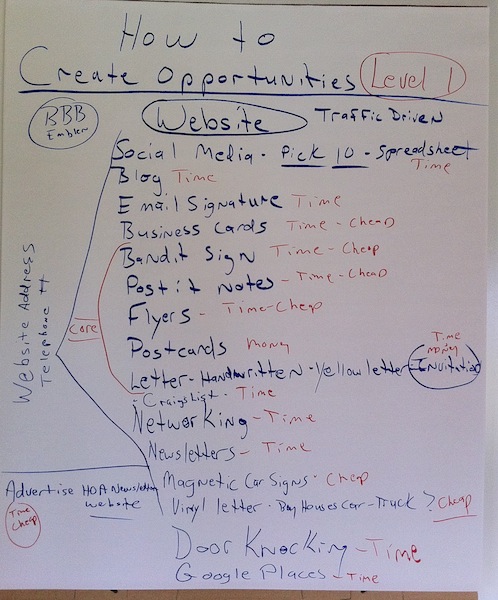 How to
Create Opportunities Level 1
BBB
Emblem
Website Traffic Driven
Social Media - Pick 10 - Spreadsheet
Time
Blog Time
Email Signature Time
Business Cards Time - Cheap
Bandit Sign Time - Cheap
Post it Notes - Time - Cheap
Flyers - Time-Cheap
Postcards Money
Time
money
Letter - Handwritten - Yellow letter - Invitation
- Craigslist - Time
Core
Website Address
Telephone #
Networking - Time
Newsletters - Time
Magnetic Car Signs - Cheap
Vinyl letter - Buy Houses Car - Truck ? Cheap
Advertise HOA Newsletter
website
Time
Cheap
Door Knocking - Time
Google Places - Time